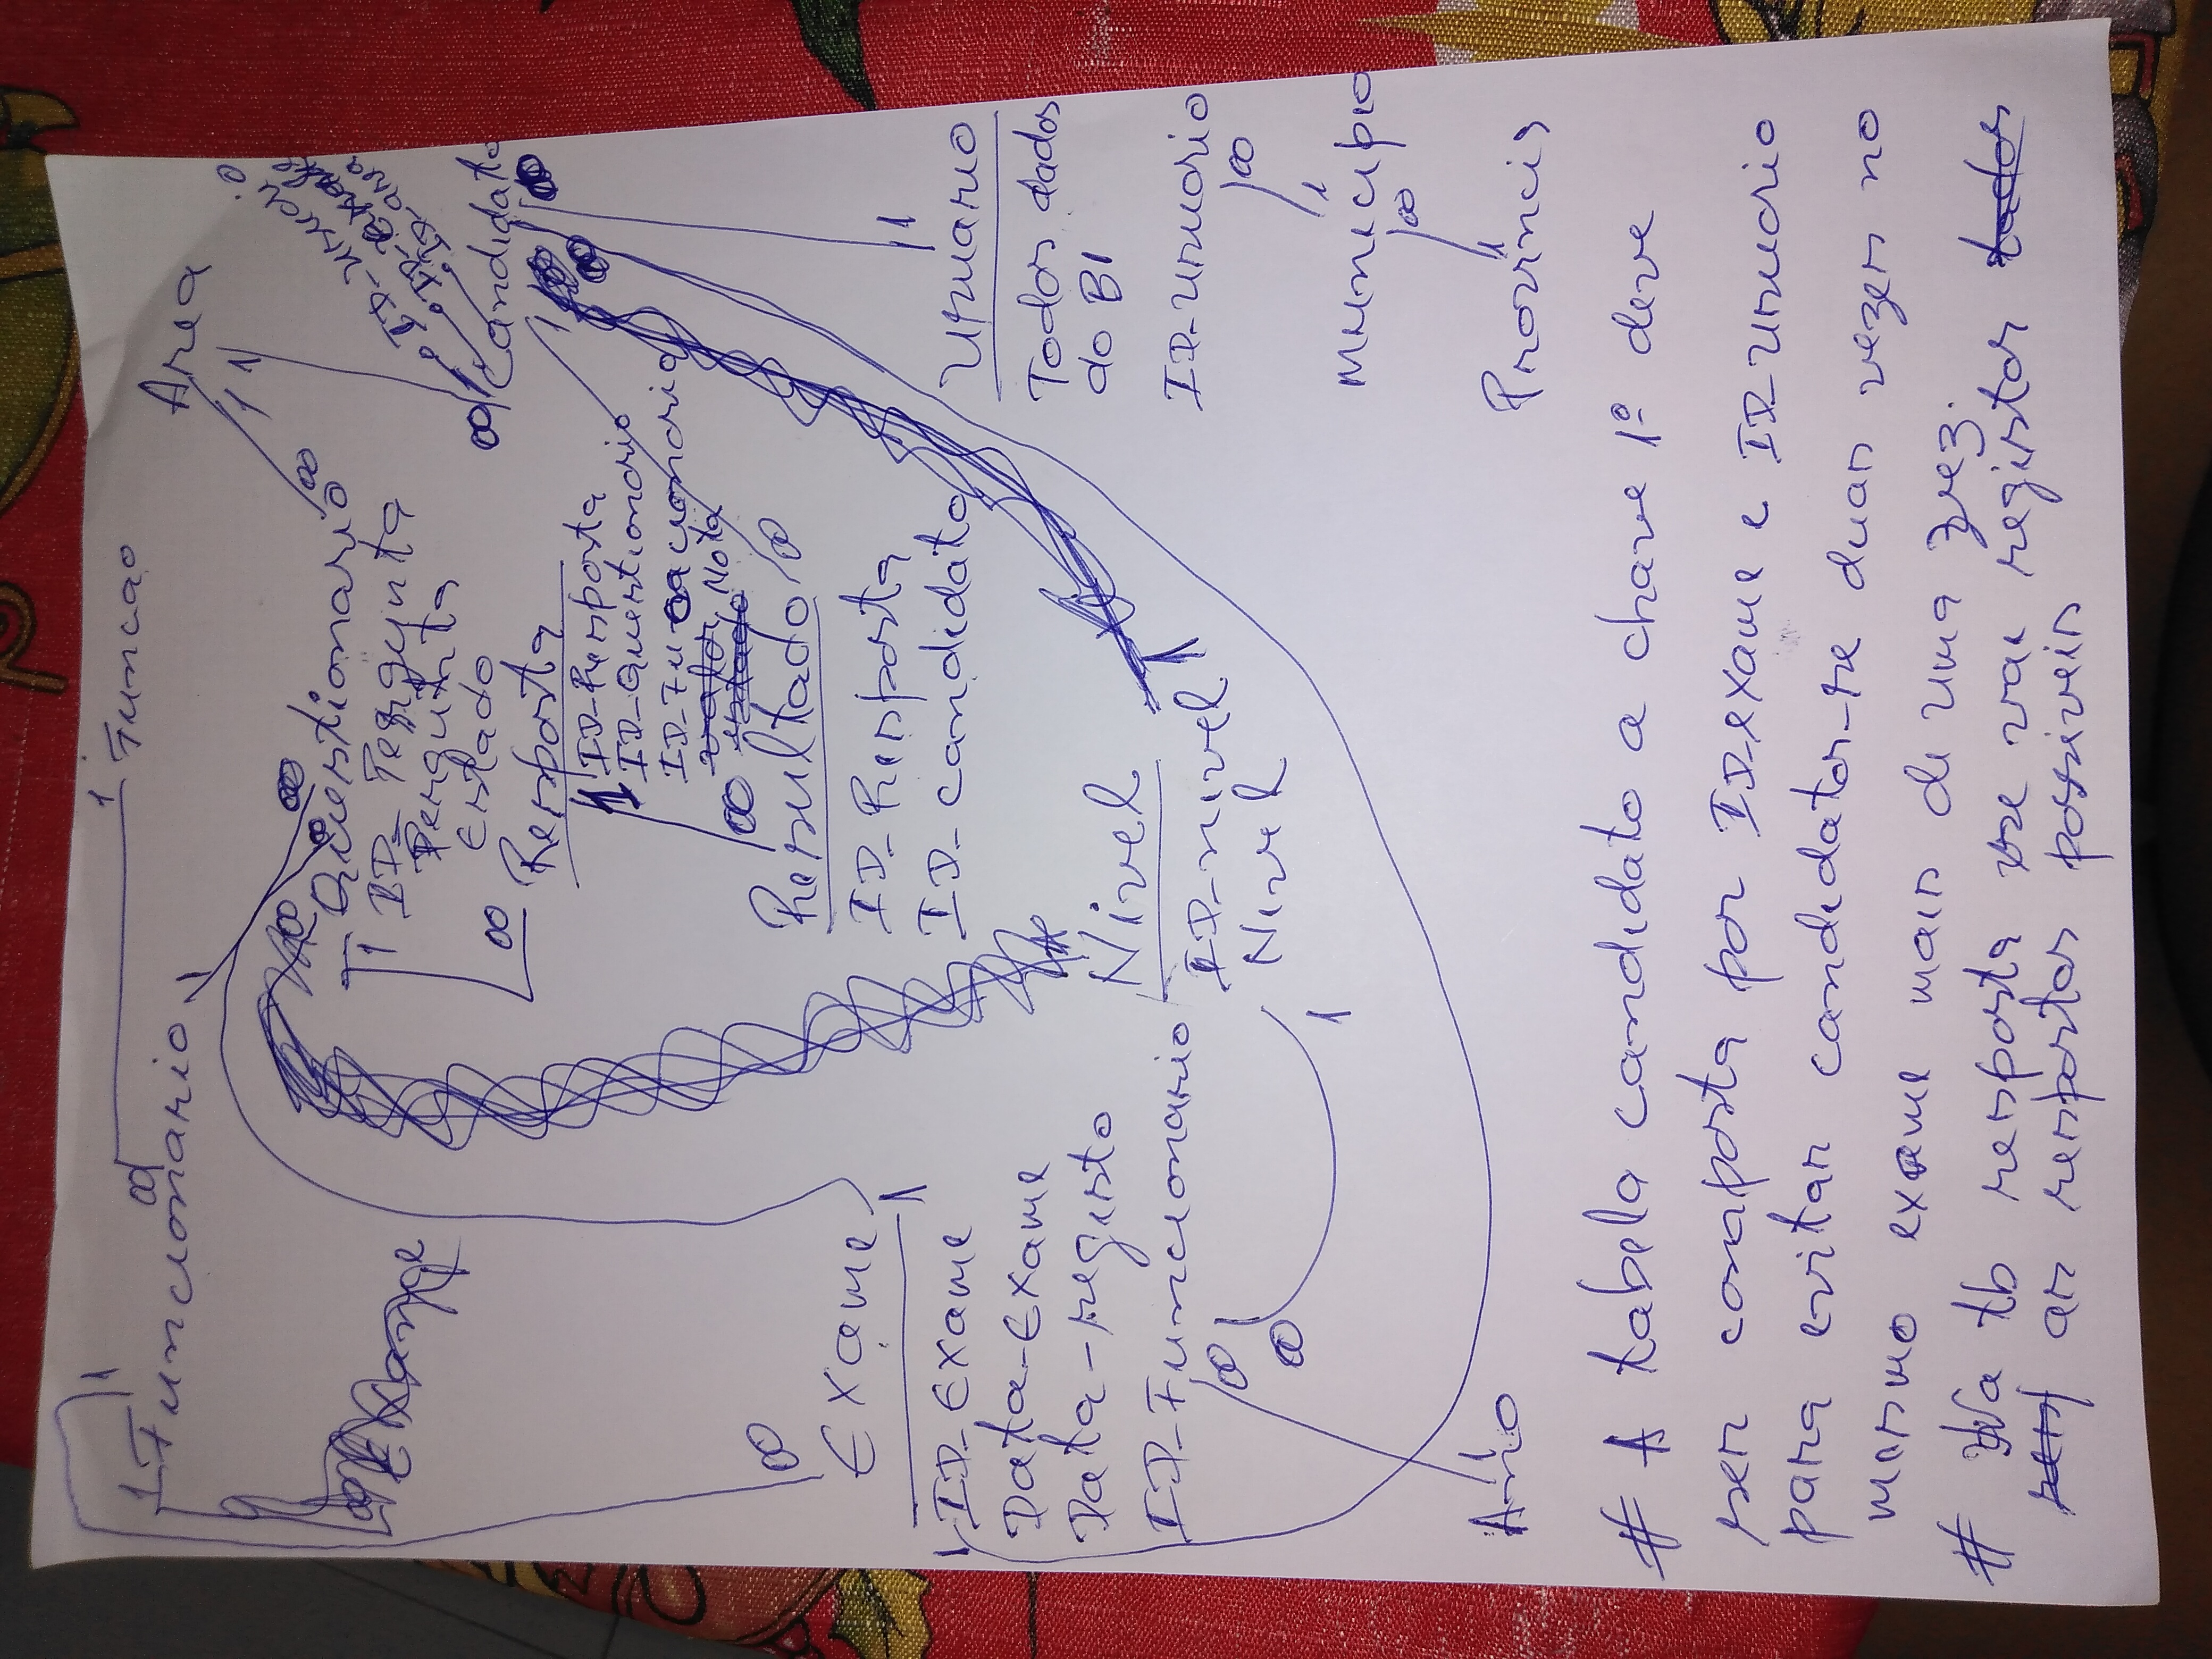 1
1 Funcionario
∞
1 Funcao
1
Area
1 1
∞ ∞ ∞
∞
Questionario
1
ID_Pergunta
Pergunta
Estado
∞
Resposta
1 ID_Resposta
ID_Questionario
ID_Funcionario
valor Nota
estado
∞
ID_usuario
ID_area
∞ Candidato
1
Resultado ∞
ID_Resposta
ID_candidato
∞
Exame
1
1 ID_Exame
Data_Exame
Data_registo
ID_Funcionario
∞
∞
1
Nivel
ID_nivel 1
Nivel
1
Ano
1
Usuario
Todos dados
do BI
ID_usuario
∞
1
Municipio
∞
1
Provincia
# A tabela candidato a chave 1º deve
ser composta por ID_exame e ID_usuario
para evitar candidatar-se duas vezes no
mesmo exame mais de uma vez.
# Na tb resposta se vai registar todos
as respostas possiveis